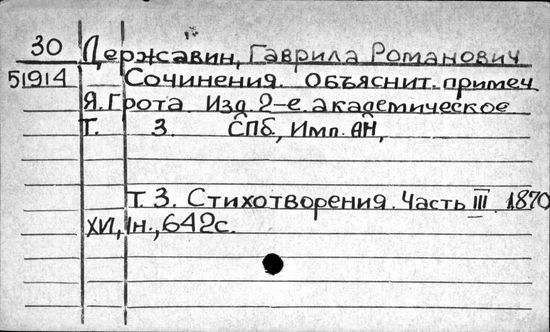 30 Державин, Гаврила Романович
51914 Сочинения. Объяснит. примеч.
Я. Грота Изд. 2-е академическое
Т. 3. СПб, Имп. АН,
Т. 3. Стихотворения. Часть III. 1870
XVI, 1н., 642с.